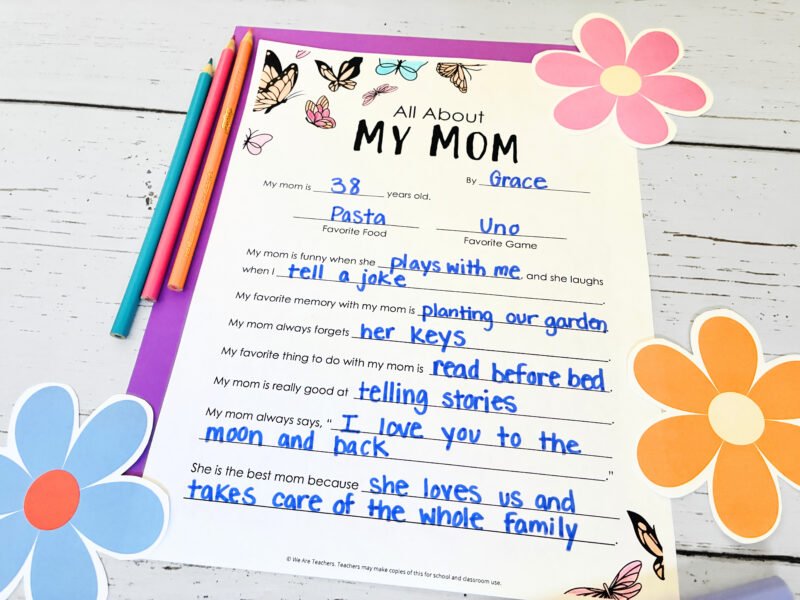 All About
MY MOM
By Grace
My mom is 38 years old.
Pasta Uno
Favorite Food Favorite Game
My mom is funny when she plays with me, and she laughs
when I tell a joke.
My favorite memory with my mom is planting our garden
My mom always forgets her keys.
My favorite thing to do with my mom is read before bed.
My mom is really good at telling stories.
My mom always says, "I love you to the
moon and back."
She is the best mom because she loves us and
takes care of the whole family.
© We Are Teachers. Teachers may make copies of this for school and classroom use.